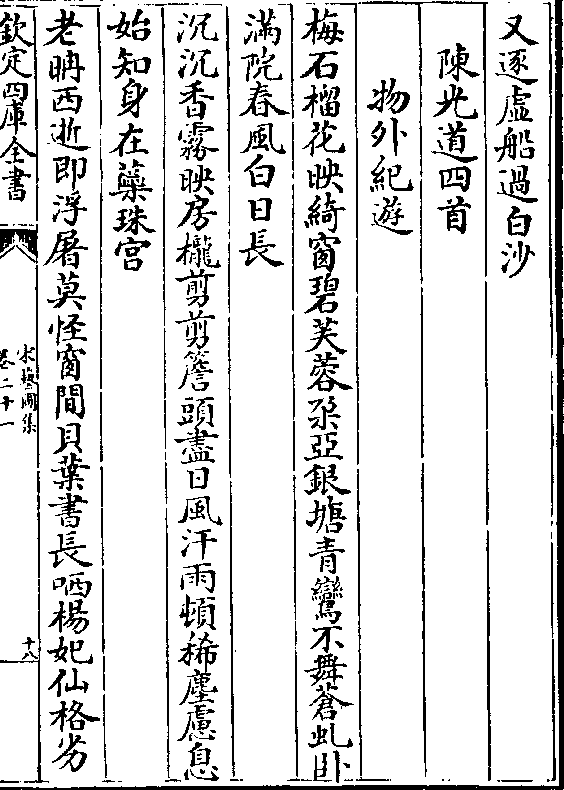 又逐虛船過白沙
陳光道四首
物外紀遊
梅石榴花映綺窗碧芙蓉朶亞銀塘青鸞不舞蒼虬卧
滿院春風白日長
沉沉香霧映房櫳剪剪簷頭盡日風汗雨頓稀塵慮息
始知身在蘂珠宫
老聃西逝即浮屠莫怪窗間貝葉書長哂楊妃仙格劣
欽定四庫全書
宋藝圃集
卷二十一
十八